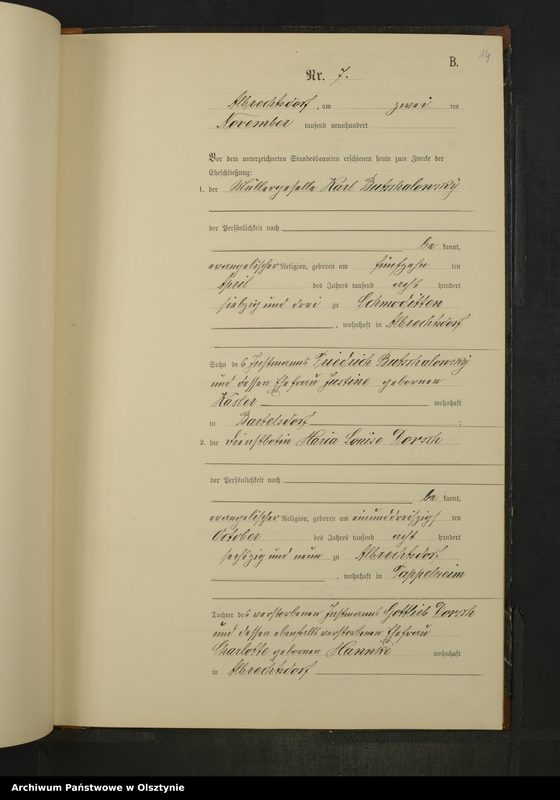 14
B.
Nr. 7.
Albrechtsdorf, am zwei ten
November tausend neunhundert
Vor dem unterzeichneten Standesbeamten erschienen heute zum Zwecke der
Eheschließung:
1. der Müllergeselle Karl Butschalowsky
der Persönlichkeit nach
be kannt,
evangelischer Religion, geboren am fünfzehn ten
April des Jahres tausend acht hundert
siebzig und drei zu Schmoditten
, wohnhaft in Albrechtsdorf
Sohn des Instmanns Friedrich Butschalowsky
und dessen Ehefrau Justine geborenen
Käsler wohnhaft
in Bartelsdorf ;
2. die Dienstbotin Maria Louise Dorsch
der Persönlichkeit nach
be kannt,
evangelischer Religion, geboren am einunddreißigs ten
October des Jahres tausend acht hundert
sechszig und neun zu Albrechtsdorf
, wohnhaft in Tappelkeim
Tochter des verstorbenen Instmanns Gottlieb Dorsch
und dessen ebenfalls verstorbenen Ehefrau
Charlotte geborenen Hannke wohnhaft
in Albrechtsdorf
Archiwum Państwowe w Olsztynie